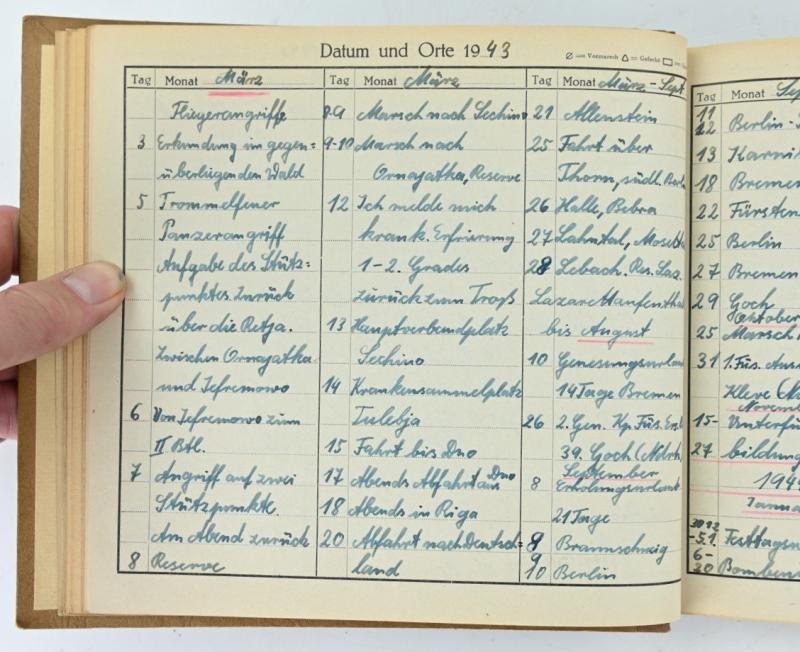 Datum und Orte 1943
= Vormarsch = Gefecht
Tag Monat März
Fliegerangriffe
3 Erkundung im gegen=
überliegenden Wald
5 Trommelfeuer
Panzerangriff
Aufgabe des Stütz=
punktes. Zurück
über die Retja.
Zwischen Ornajatka
und Jefremowo
6 Von Jefremowo zum
II Btl.
7 Angriff auf zwei
Stützpunkte.
Am Abend zurück
8 Reserve
Tag Monat März
8-9 Marsch nach Sechino
9-10 Marsch nach
Ornajatka, Reserve
12 Ich melde mich
krank. Erfrierung
1-2. Grades
zurück zum Troß
13 Hauptverbandplatz
Sechino
14 Krankensammelplatz
Tulebja
15 Fahrt bis Dno
17 Abends Abfahrt aus Dno
18 Abends in Riga
20 Abfahrt nach Deutsch=
land
Tag Monat März - Sept
21 Allenstein
25 Fahrt über
Thorn, südl. Berlin
26 Halle, Bebra
27 Lahntal, Moselt
28 Lebach. Res. Laz.
Lazarettaufentha
bis August
10 Genesungsurlau
14 Tage Bremen
26 2. Gen. Kp. Füs. Ers.
39. Goch (Ndrh
September
8 Erholungsurlaub
21 Tage
8 Braunschweig
9
10 Berlin
Tag Monat Sep
11
12 Berlin-
13 Karni
18 Bremen
22 Fürsten
25 Berlin
27 Bremen
29 Goch
Oktober
25 Marsch
31 1. Füs. Aus
Kleve (N
Novemb
15- Unterfü
27 bildung
194
Janua
30.12
-5.1. Festtagsu
6-
20 Bomben